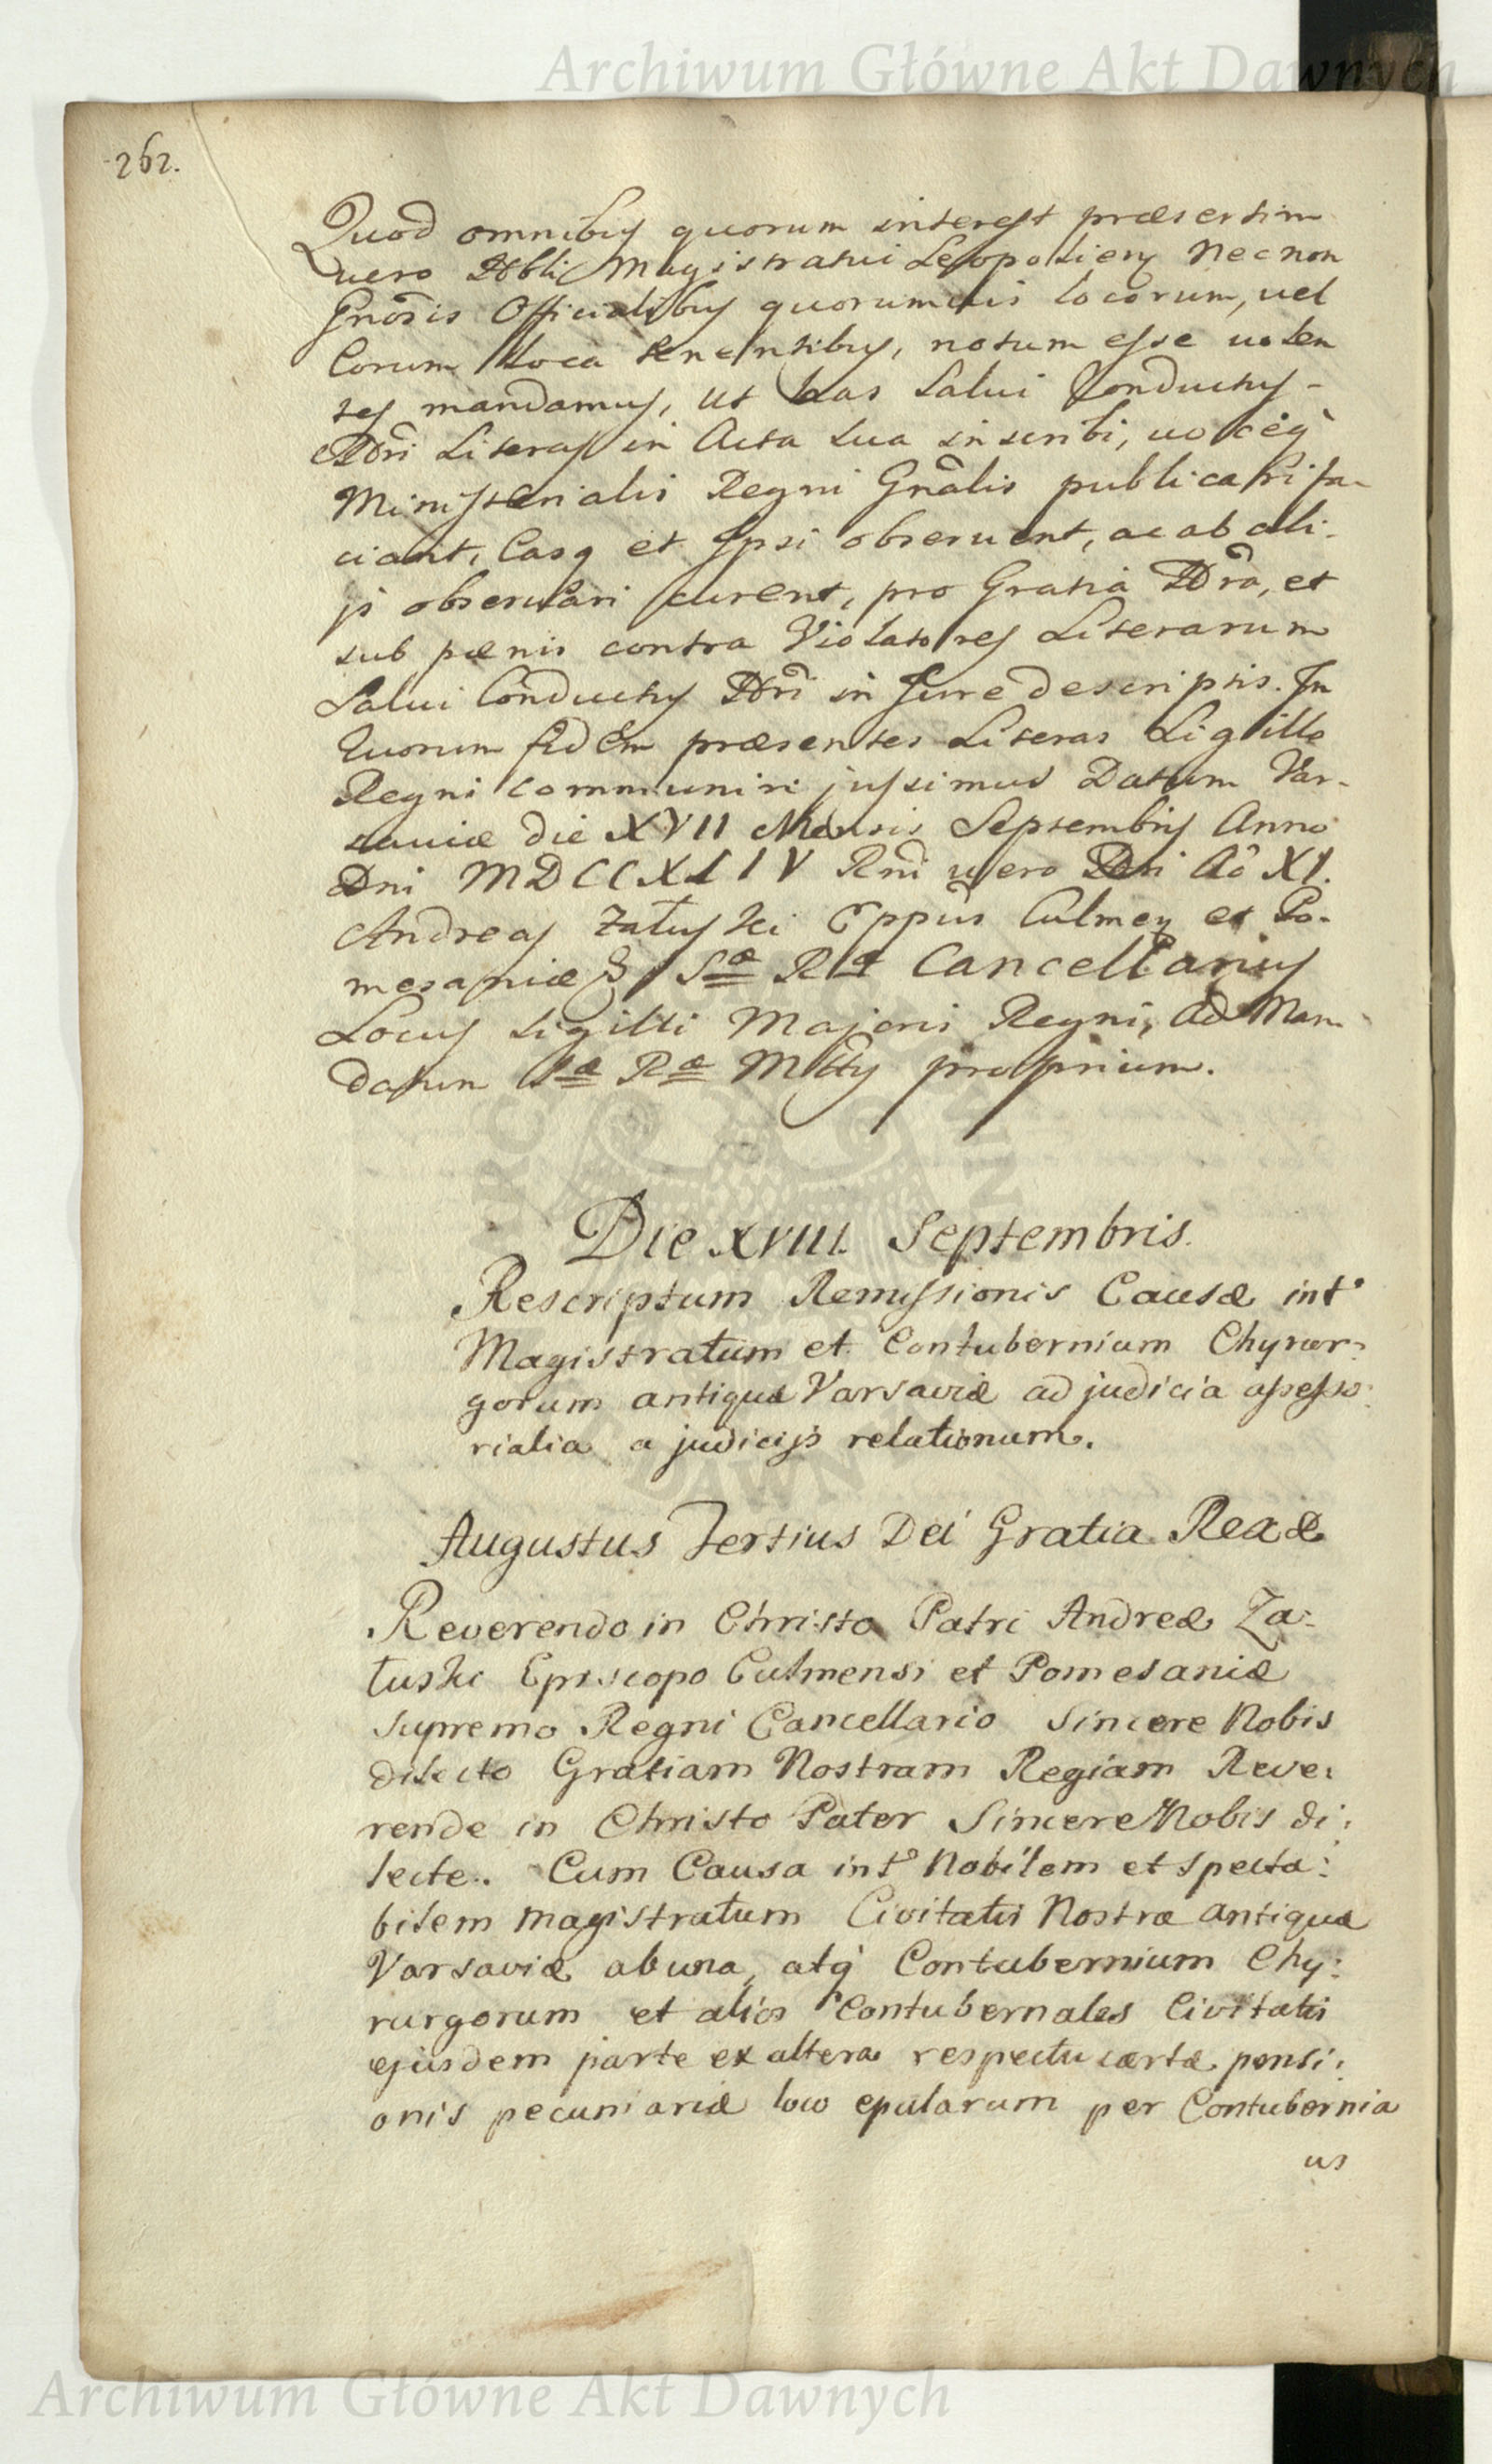 Archiwum Główne Akt Dawnych
262.
Quod omnibus quorum interest præsertim
vero Nbli Magistratui Leopoliens Necnon
Gnosis Officialibus quorumvis locorum, vel
Eorum Loca tenentibus, notum esse volen
tes mandamus, ut has Salvi Conductus
Nri Literas in Acta sua inscribi, voceq
Ministerialis Regni Gnalis publicari fa-
ciant, Easq et Ipsi observent, ac ab ali-
js observari curent, pro Gratia Nra, et
sub pænis contra Violatores Literarum
Salvi Conductus Nri in Jure descriptis. In
Quorum fidem præsentes Literas Sigillo
Regni communiri jussimus Datum Var-
saviæ die XVII Mensis Septembris Anno
Dni MDCCXLIV Rni vero Nri Ao XI.
Andreas Załuski Eppus Culmen et Po-
mesaniæ S R Cancellarius
Locus Sigilli Majoris Regni, Ad Man
datum Sæ Ræ Mttis proprium.
Die XVIII. Septembris.
Rescriptum Remissionis Causæ intr
Magistratum et Contubernium Chyrur:
gorum antiquæ Varsaviæ ad judicia assesso:
rialia a judicijs relationum.
Augustus Tertius Dei Gratia Rex &
Reverendo in Christo Patri Andreæ Za:
łuski Episcopo Culmensi et Pomesaniæ
supremo Regni Cancellario Sincere Nobis
dilecto Gratiam Nostram Regiam Reve:
rende in Christo Pater Sincere Nobis di:
lecte. Cum Causa intr Nobilem et specta:
bilem magistratum Civitatis Nostræ antiquæ
Varsaviæ ab una, atq Contubernium Chy:
rurgorum et alios Contubernales Civitatis
ejusdem parte ex altera respectu certæ pensi:
onis pecuniariæ loco epularum per Contubernia
us
Archiwum Główne Akt Dawnych